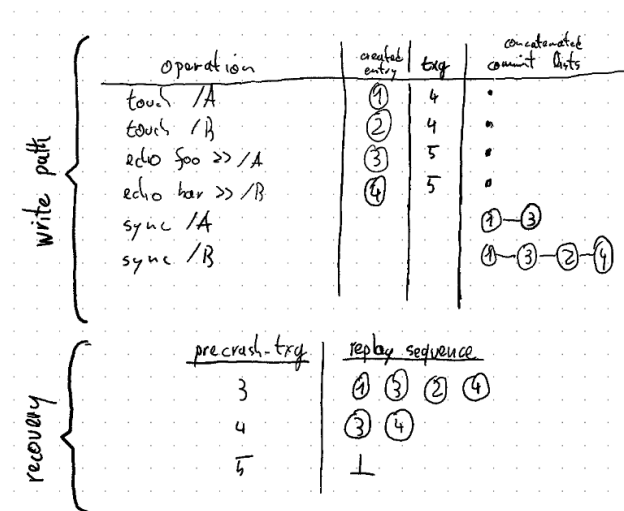 write path
operation created entry txg concatenated commit lists
touch /A ① 4 •
touch /B ② 4 •
echo foo >> /A ③ 5 •
echo bar >> /B ④ 5 •
sync /A ①-③
sync /B ①-③-②-④
recovery
precrash-txg replay sequence
3 ① ③ ② ④
4 ③ ④
5 ⊥